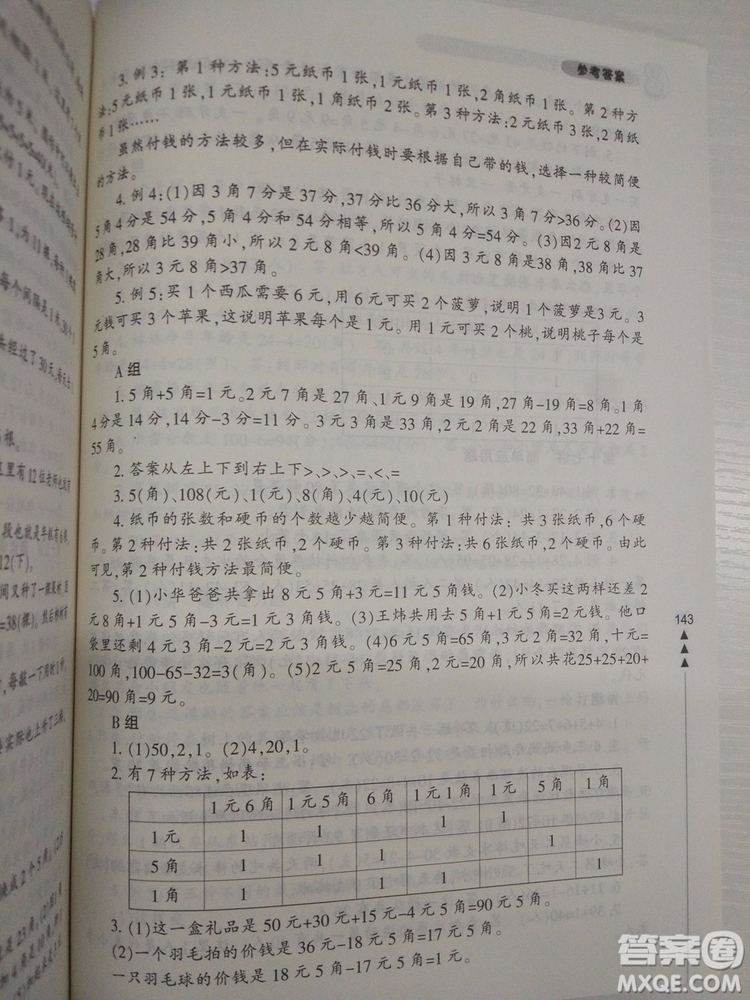 参考答案
3. 例 3：第 1 种方法：5 元纸币 1 张，1 元纸币 1 张，2 角纸币 1 张。第 2 种方
法：5 元纸币 1 张，1 元纸币 1 张，1 角纸币 2 张。第 3 种方法：2 元纸币 3 张，2 角纸
币 1 张……
虽然付钱的方法较多，但在实际付钱时要根据自己带的钱，选择一种较简便
的方法。
4. 例 4：(1)因 3 角 7 分是 37 分，37 分比 36 分大，所以 3 角 7 分>36 分。(2)因
5 角 4 分是 54 分，5 角 4 分和 54 分相等，所以 5 角 4 分=54 分。(3)因 2 元 8 角是
28 角，28 角比 39 角小，所以 2 元 8 角<39 角。(4)因 3 元 8 角是 38 角，38 角比 37
角大，所以 3 元 8 角>37 角。
5. 例 5：买 1 个西瓜需要 6 元，用 6 元可买 2 个菠萝，说明 1 个菠萝是 3 元。3
元钱可买 3 个苹果，这说明苹果每个是 1 元。1 元可买 2 个桃，说明桃子每个是
5 角。
A 组
1. 5 角+5 角=1 元。2 元 7 角是 27 角、1 元 9 角是 19 角，27 角-19 角=8 角。1 角
4 分是 14 分，14 分-3 分=11 分。3 元 3 角是 33 角，2 元 2 角是 22 角，33 角+22 角=
55 角。
2. 答案从左上下到右上下>、>、>、=、<、=
3. 5(角)、108(元)、1(元)、8(角)、4(元)、10(元)
4. 纸币的张数和硬币的个数越少越简便。第 1 种付法：共 3 张纸币，6 个硬
币。第 2 种付法：共 2 张纸币，2 个硬币。第 3 种付法：共 5 张纸币，2 个硬币。由此
可见，第 2 种付钱方法最简便。
5. (1)小华爸爸共拿出 8 元 5 角+3 元=11 元 5 角钱。(2)小冬买这两样还差 2
元 8 角+1 元 5 角-3 元=1 元 3 角钱。(3)王炜共用去 5 角+1 元 5 角=2 元钱。他口
袋里还剩 4 元 3 角-2 元=2 元 3 角钱。(4)6 元 5 角=65 角，3 元 2 角=32 角，十元=
100 角，100-65-32=3(角)。(5)2 元 5 角=25 角，2 元=20 角，所以共花25+25+20+
20=90 角=9 元。
B 组
1. (1)50，2，1。(2)4，20，1。
2. 有 7 种方法，如表：
1 元 6 角 1 元 5 角 6 角 1 元 1 角 1 元 5 角 1 角
1 元 1 1 1 1
5 角 1 1 1 1
1 角 1 1 1 1
3. (1)这一盒礼品是 50 元+30 元+15 元-4 元 5 角=90 元 5 角。
(2)一个羽毛拍的价钱是 36 元-18 元 5 角=17 元 5 角。
一只羽毛球的价钱是 18 元 5 角-17 元 5 角=1 元。
143
答案圈
MXQE.COM